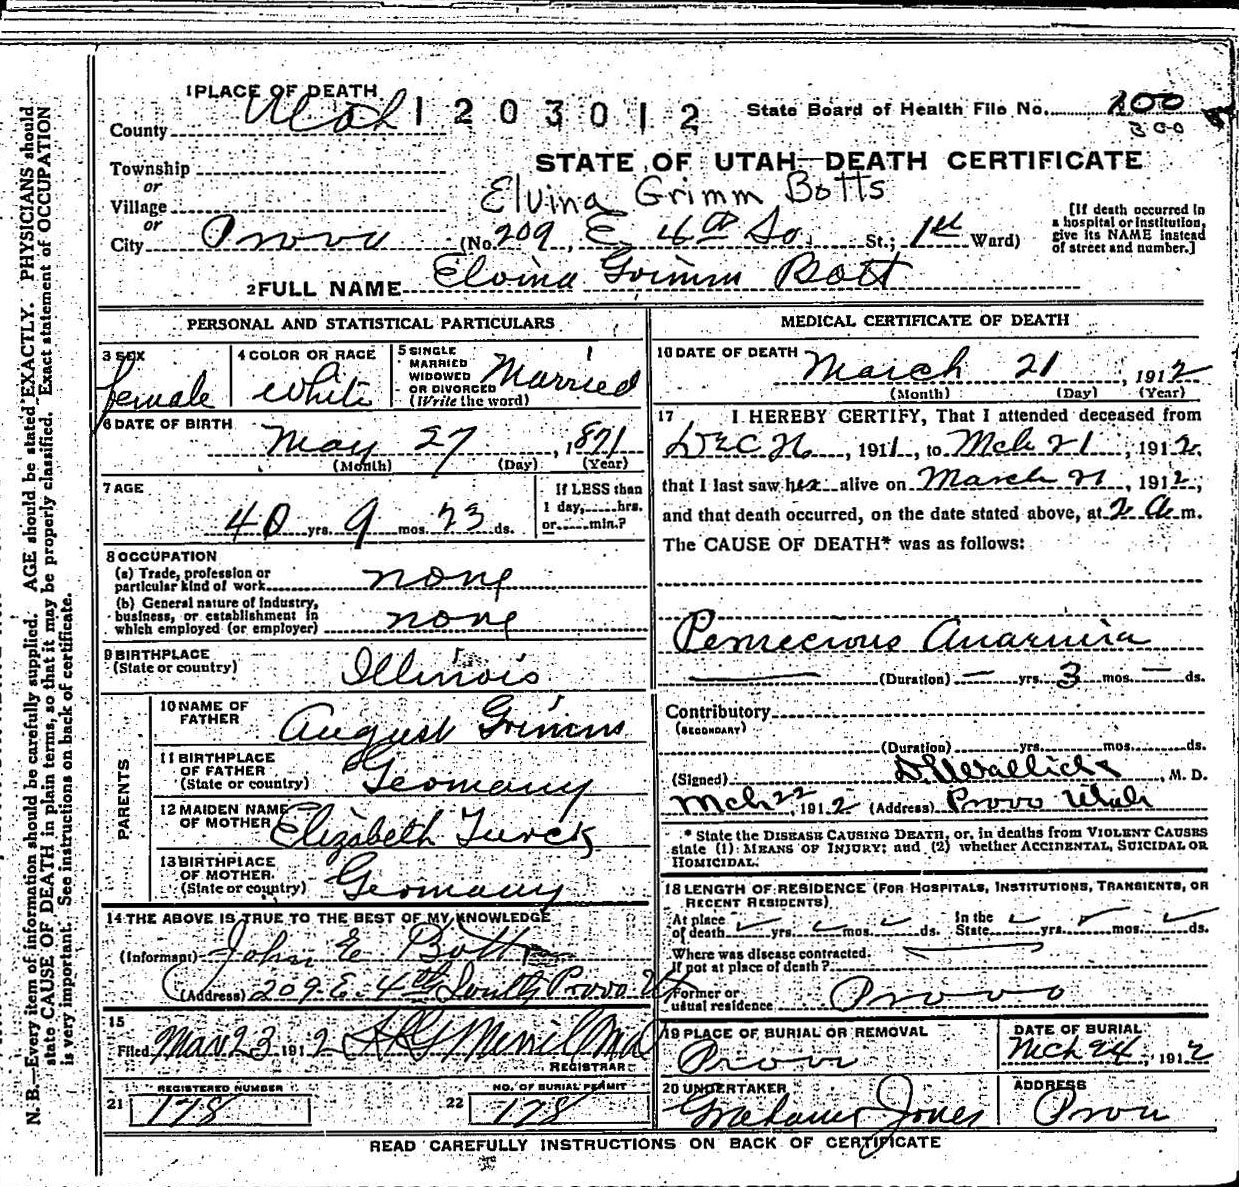 1 PLACE OF DEATH
1203012
State Board of Health File No. 200
300
County Utah
STATE OF UTAH—DEATH CERTIFICATE
Township
or
Village
Elvina Grimm Botts
or
City Provo (No. 209, E. 4th So. St.; 1st Ward)
[If death occurred in
a hospital or institution,
give its NAME instead
of street and number.]
2 FULL NAME Elvina Grimm Bott
PERSONAL AND STATISTICAL PARTICULARS
3 SEX
female
4 COLOR OR RACE
White
5 SINGLE
MARRIED
WIDOWED
OR DIVORCED
(Write the word)
Married
6 DATE OF BIRTH
May 27, 1871
(Month) (Day) (Year)
7 AGE
40 yrs. 9 mos. 23 ds.
If LESS than
1 day, hrs.
or min.?
8 OCCUPATION
(a) Trade, profession or
particular kind of work none
(b) General nature of Industry,
business, or establishment in
which employed (or employer) none
9 BIRTHPLACE
(State or country) Illinois
PARENTS
10 NAME OF
FATHER August Grimm
11 BIRTHPLACE
OF FATHER
(State or country) Germany
12 MAIDEN NAME
OF MOTHER Elizabeth Turck
13 BIRTHPLACE
OF MOTHER
(State or country) Germany
14 THE ABOVE IS TRUE TO THE BEST OF MY KNOWLEDGE
(Informant) John E Bott
(Address) 209 E. 4th South Provo Ut
15
Filed Mar 23 1912 Merrill Md
REGISTRAR
REGISTERED NUMBER
21 178
NO. OF BURIAL PERMIT
22 178
MEDICAL CERTIFICATE OF DEATH
16 DATE OF DEATH
March 21, 1912
(Month) (Day) (Year)
17 I HEREBY CERTIFY, That I attended deceased from
Dec 26, 1911, to Mch 21, 1912,
that I last saw her alive on March 21, 1912,
and that death occurred, on the date stated above, at 2 a m.
The CAUSE OF DEATH* was as follows:
Pernecious Anaemia
(Duration) — yrs. 3 mos. — ds.
Contributory
(SECONDARY)
(Duration) yrs. mos. ds.
(Signed) M. D.
Mch 22, 1912 (Address) Provo Utah
* State the DISEASE CAUSING DEATH, or, in deaths from VIOLENT CAUSES
state (1) MEANS OF INJURY; and (2) whether ACCIDENTAL, SUICIDAL OR
HOMICIDAL.
18 LENGTH OF RESIDENCE (FOR HOSPITALS, INSTITUTIONS, TRANSIENTS, OR
RECENT RESIDENTS)
At place
of death yrs. mos. ds.
In the
State yrs. mos. ds.
Where was disease contracted.
If not at place of death?
Former or
usual residence Provo
19 PLACE OF BURIAL OR REMOVAL
Provo
DATE OF BURIAL
Mch 24, 1912
20 UNDERTAKER
Jones
ADDRESS
Provo
READ CAREFULLY INSTRUCTIONS ON BACK OF CERTIFICATE
N. B.—Every item of information should be carefully supplied. AGE should be stated EXACTLY. PHYSICIANS should
state CAUSE OF DEATH in plain terms, so that it may be properly classified. Exact statement of OCCUPATION
is very important. See instructions on back of certificate.